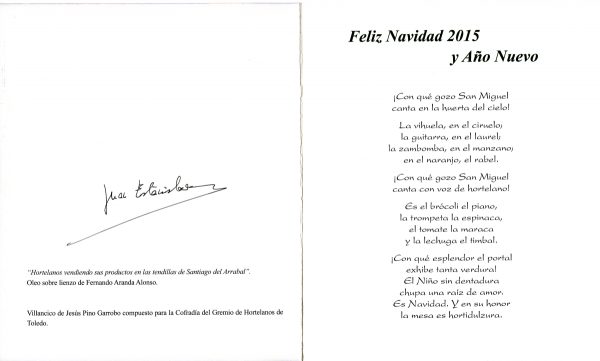 Juan Estanislao
"Hortelanos vendiendo sus productos en las tendillas de Santiago del Arrabal".
Oleo sobre lienzo de Fernando Aranda Alonso.
Villancico de Jesús Pino Garrobo compuesto para la Cofradía del Gremio de Hortelanos de
Toledo.
Feliz Navidad 2015
y Año Nuevo
¡Con qué gozo San Miguel
canta en la huerta del cielo!
La vihuela, en el ciruelo;
la guitarra, en el laurel;
la zambomba, en el manzano;
en el naranjo, el rabel.
¡Con qué gozo San Miguel
canta con voz de hortelano!
Es el brócoli el piano,
la trompeta la espinaca,
el tomate la maraca
y la lechuga el timbal.
¡Con qué esplendor el portal
exhibe tanta verdura!
El Niño sin dentadura
chupa una raíz de amor.
Es Navidad. Y en su honor
la mesa es hortidulzura.